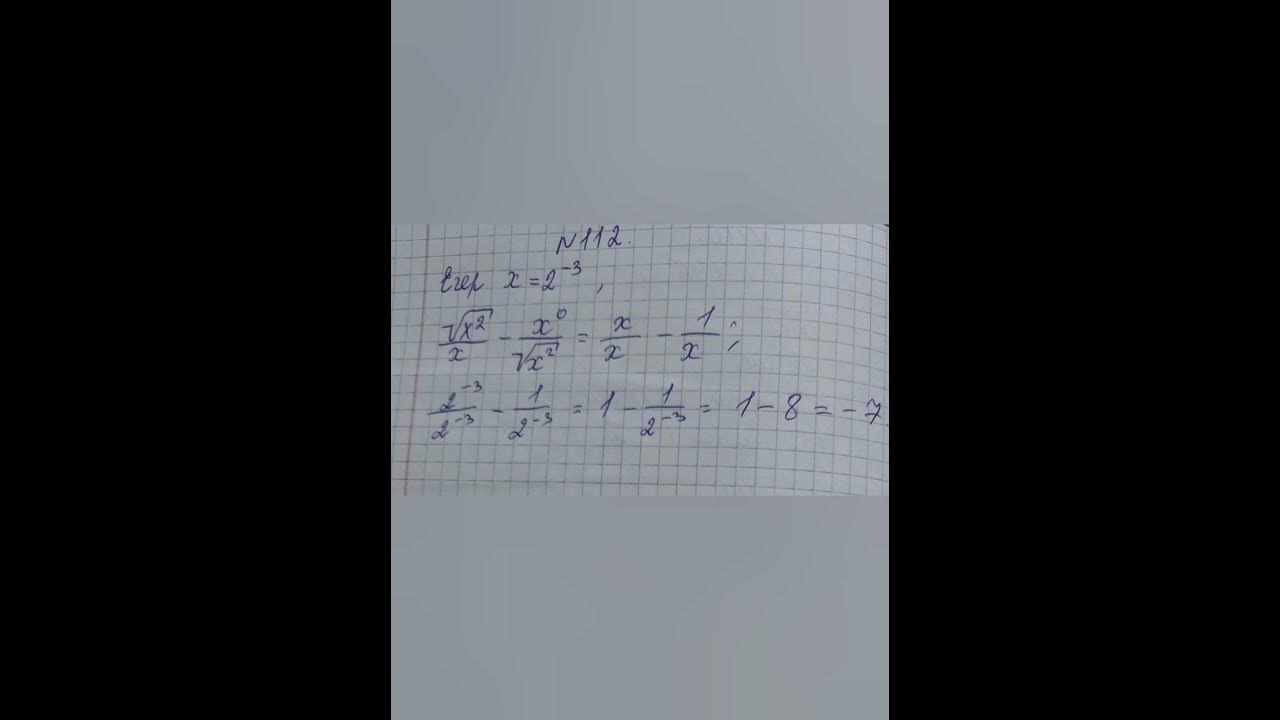 N112.
Егер x = 2⁻³,
√x²/x - x⁰/√x² = x/x - 1/x;
2⁻³/2⁻³ - 1/2⁻³ = 1 - 1/2⁻³ = 1 - 8 = -7.